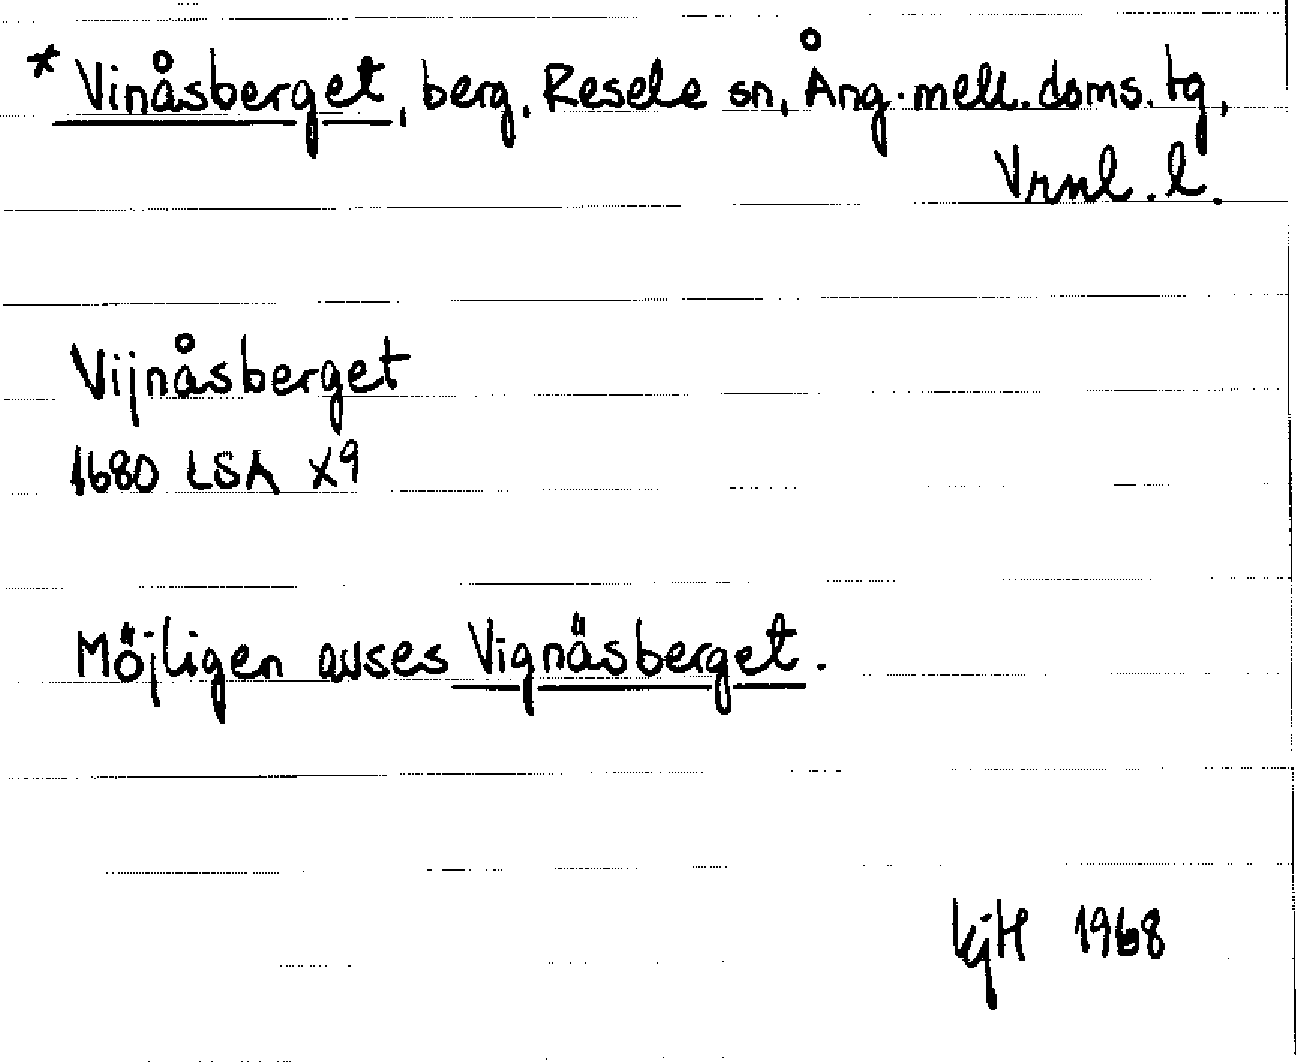 * Vinåsberget, berg, Resele sn, Ång. mell. doms. tg,
Vrnl. l.
Vijnåsberget
1680 LSA X9
Möjligen avses Vignäsberget.
KjH 1968